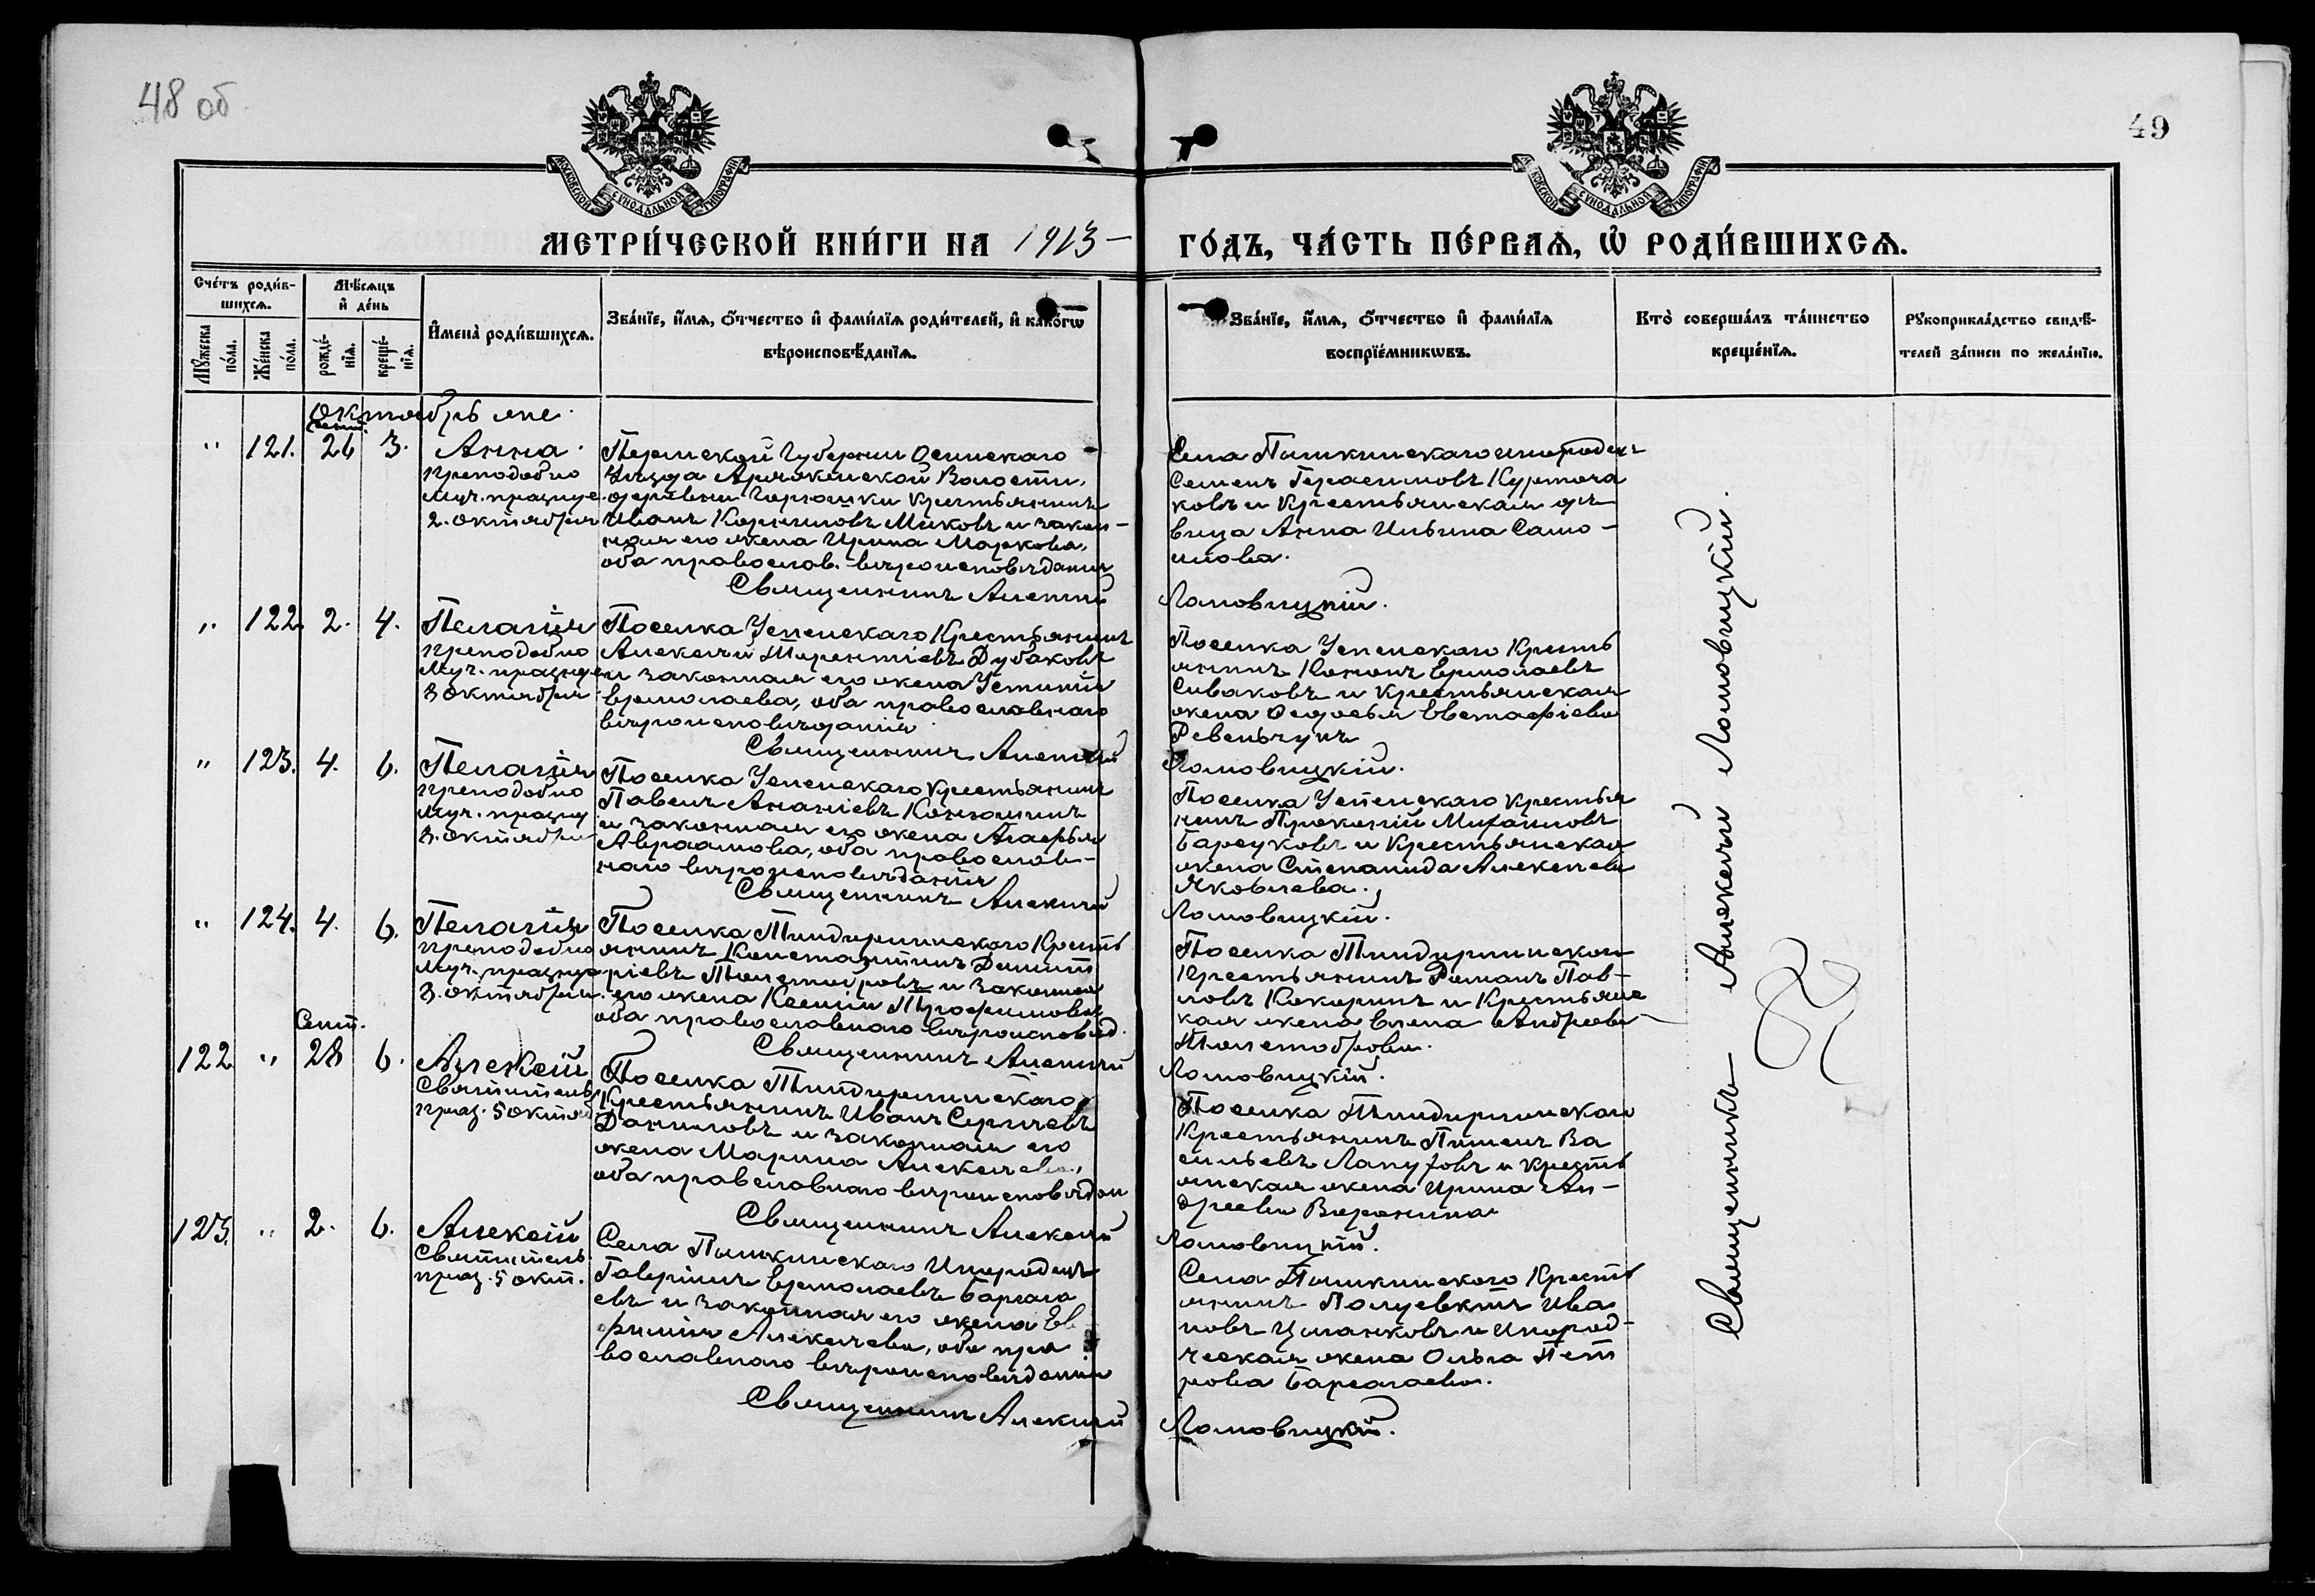 48 об
49
МОСКОВСКОЙ СѴНОДАЛЬНОЙ ТИПОГРАФІИ
МОСКОВСКОЙ СѴНОДАЛЬНОЙ ТИПОГРАФІИ
МЕТРИ́ЧЕСКОЙ КНИ́ГИ НА 1913 ГО́ДЪ, ЧА́СТЬ ПЕ́РВАѦ, Ѡ҆ РОДИ́ВШИХСѦ.
Счётъ роди́в-
шихсѧ.
Мꙋ́жеска по́ла.
Же́нска по́ла.
Мѣ́сѧцъ
и҆ де́нь
рожде́-
нїѧ.
креще́-
нїѧ.
И҆мена̀ роди́вшихсѧ.
Зва́нїе, и҆́мѧ, ѻ҆́тчество и҆ фами́лїѧ роди́телей, и҆ како́гѡ
вѣроисповѣ́данїѧ.
Зва́нїе, и҆́мѧ, ѻ҆́тчество и҆ фами́лїѧ
воспрїе́мникѡвъ.
Кто̀ соверша́лъ та́инство
креще́нїѧ.
Рꙋкоприкла́дство свидѣ́-
телей за́писи по жела́нїю.
Октябрь
сент.
" 121. 26 3. Анна
Преподобно
муч. празнуе.
2. октября
Пермской Губерніи Осинскаго
Уѣзда Аряжской Волости,
деревни Горюшки крестьянинъ
Иванъ Корниловъ Миковъ и закон-
ная его жена Ирина Маркова,
оба православ. вѣроисповѣданія
Священникъ Алексѣй Ломовицкій.
Села Пашкинскаго инородецъ
Семенъ Герасимовъ Куртога
ковъ и крестьянская дѣ-
вица Анна Ильина Само-
илова.
" 122. 2. 4. Пелагія
Преподобно
муч. празнуе
8 октября
Поселка Успенскаго Крестьянинъ
Алексѣй Терентіевъ Дубаковъ
и законная его жена Устинія
Ермолаева, оба православнаго
вѣроисповѣданія
Священникъ Алексѣй Ломовицкій.
Поселка Успенскаго Кресть
янинъ Кононъ Ермолаевъ
Сиваковъ и Крестьянская
жена Ѳедосья Евстафіева
Ревенчукъ
" 123. 4. 6. Пелагія
Преподобно
муч. празну
8. октября
Поселка Успенскаго Крестьянинъ
Павелъ Ананіевъ Конюшинъ
и законная его жена Агафья
Авраамова, оба православ-
наго вѣроисповѣданія
Священникъ Алексѣй Ломовицкій.
Поселка Успенскаго Крестья
нинъ Прокопій Михайловъ
Барсуковъ и Крестьянская
жена Степанида Алексеева
Яковлева.
" 124. 4. 6. Пелагія
Преподобно
муч. празнуе
8. октября.
Поселка Тиндерлинскаго Кресть
янинъ Константинъ Димит
ріевъ Толстобровъ и законная
его жена Ксенія Трофимова
оба православнаго вѣроисповѣд.
Священникъ Алексѣй Ломовицкій.
Поселка Тиндерлинскаго
Крестьянинъ Романъ Пав-
ловъ Кокоринъ и Крестьянс
кая жена Елена Андреева
Толстоброва.
Сент.
122 " 28 6. Алексій
Святитель
праз. 5 октя
Поселка Тиндерлинскаго
Крестьянинъ Иванъ Сергѣевъ
Даниловъ и законная его
жена Марина Алексѣева,
оба православнаго вѣроисповѣдан
Священникъ Алексѣй Ломовицкій.
Поселка Тиндерлинскаго
Крестьянинъ Пименъ Ва
сильевъ Лапуховъ и кресть
янская жена Ирина Ан-
дреева Воронина
123. " 2. 6. Алексій
Святитель
праз. 5 окт.
Села Пашкинскаго Инородецъ
Гавріилъ Ермолаевъ Баргага
евъ и законная его жена Ев
фимія Алексѣева, оба пра
вославнаго вѣроисповѣданія
Священникъ Алексѣй Ломовицкій.
Села Пашкинскаго Кресть
янинъ Полуевктъ Ива
новъ Цыганковъ и Инород-
ческая жена Ольга Пет
рова Баргагаева.
Священникъ Алексѣй Ломовицкій